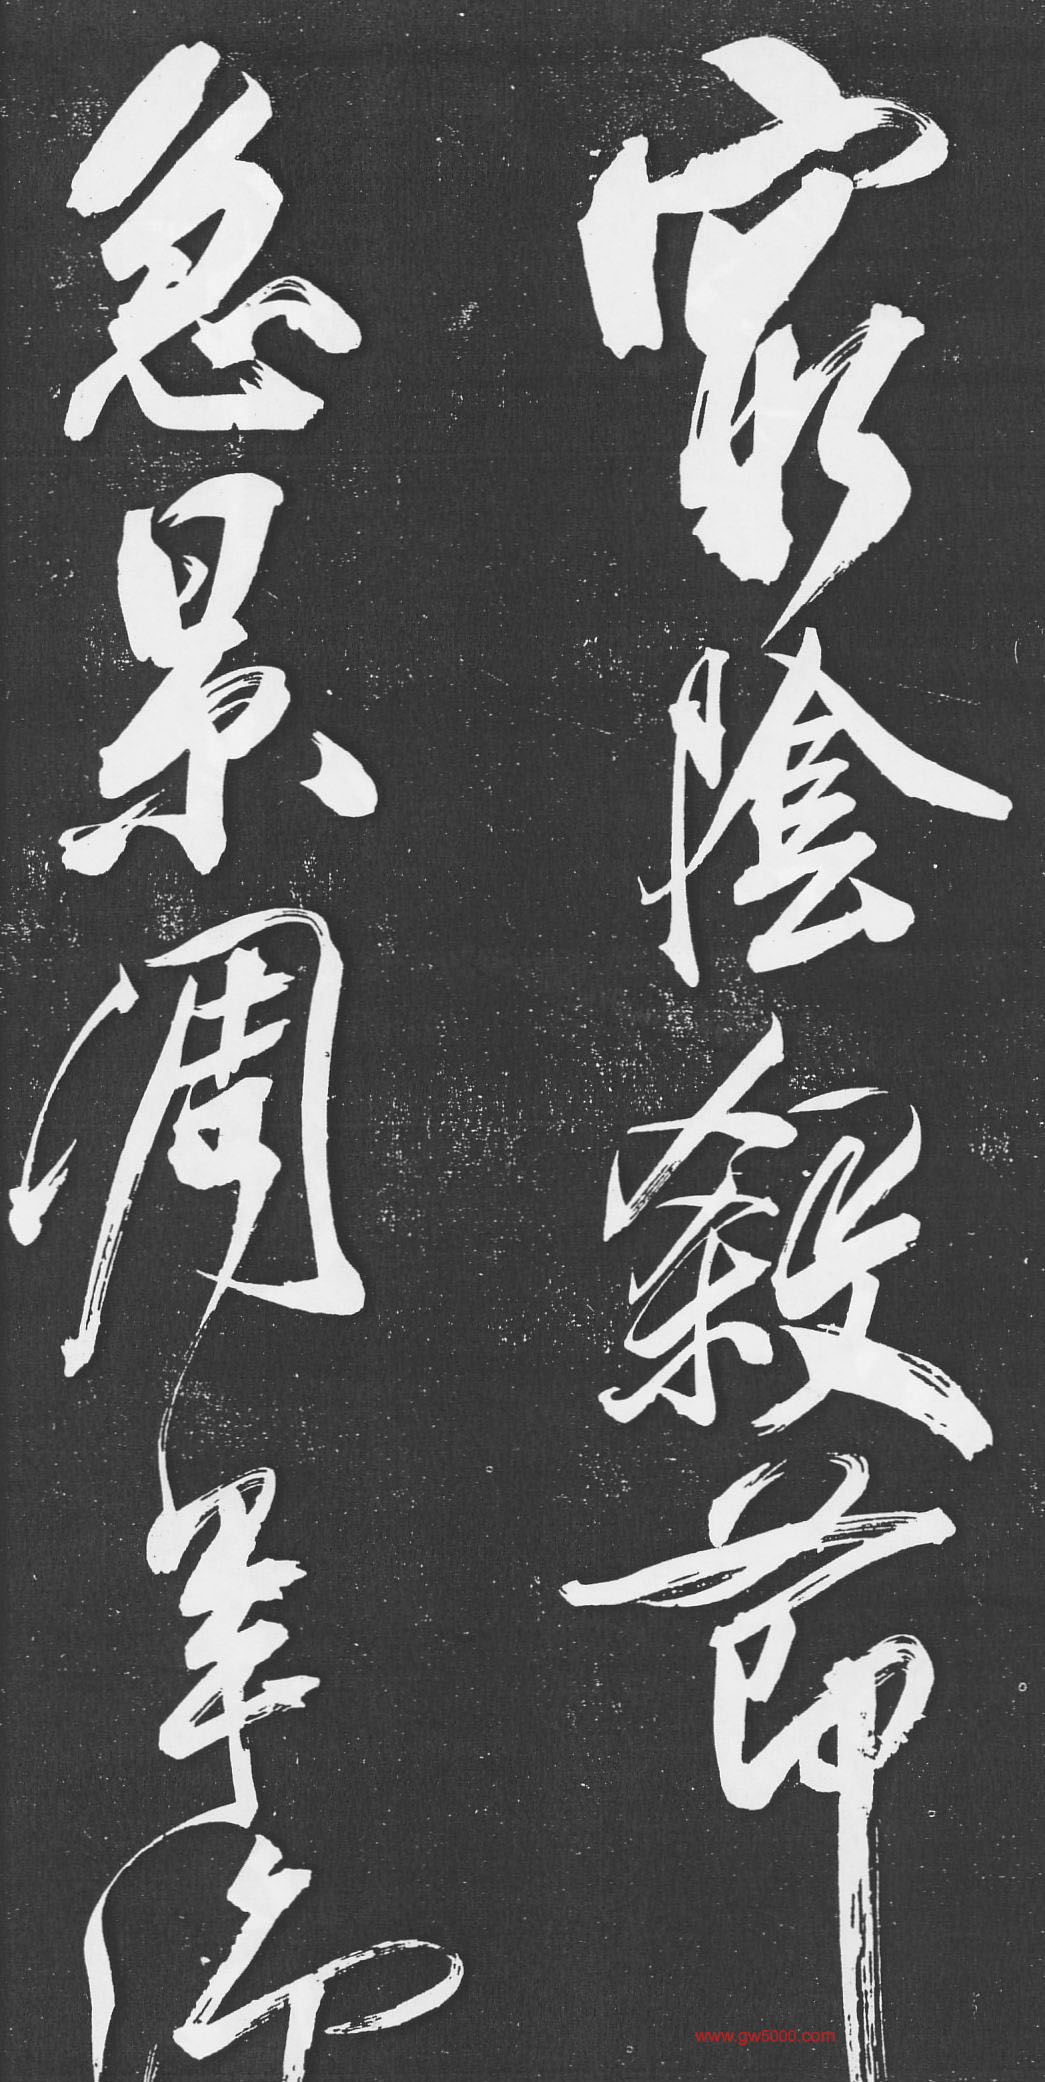 窮陰殺節
急景凋年
www.gw5000.com